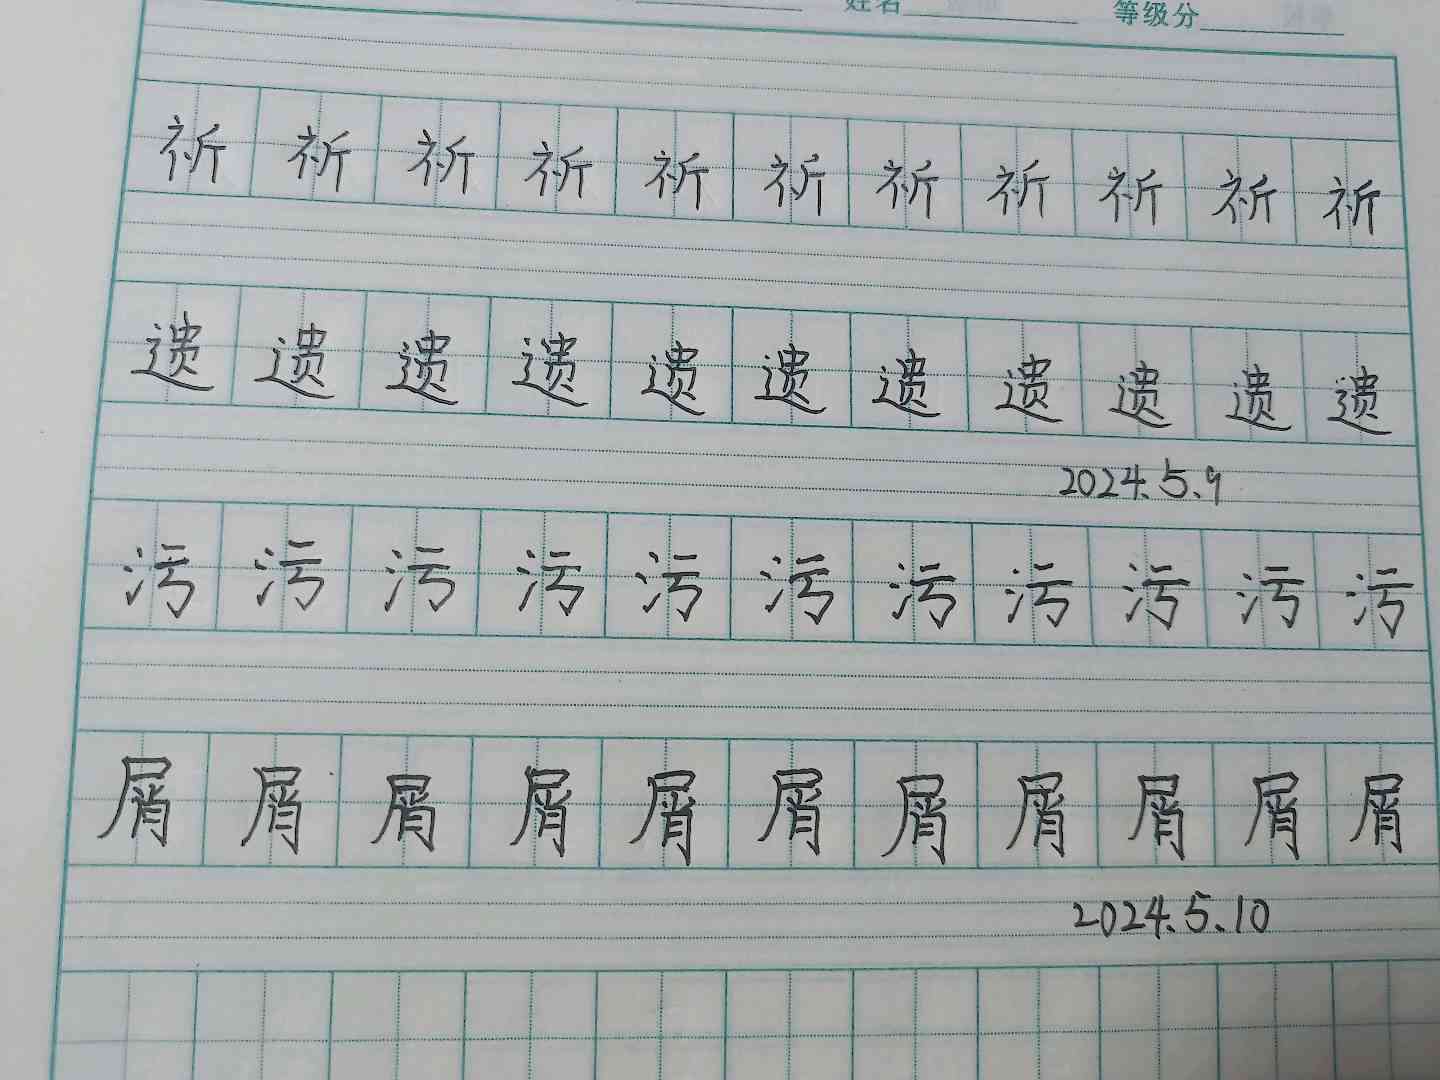 姓名 等级分
祈 祈 祈 祈 祈 祈 祈 祈 祈 祈 祈
遗 遗 遗 遗 遗 遗 遗 遗 遗 遗 遗
2024.5.9
污 污 污 污 污 污 污 污 污 污 污
屑 屑 屑 屑 屑 屑 屑 屑 屑 屑 屑
2024.5.10